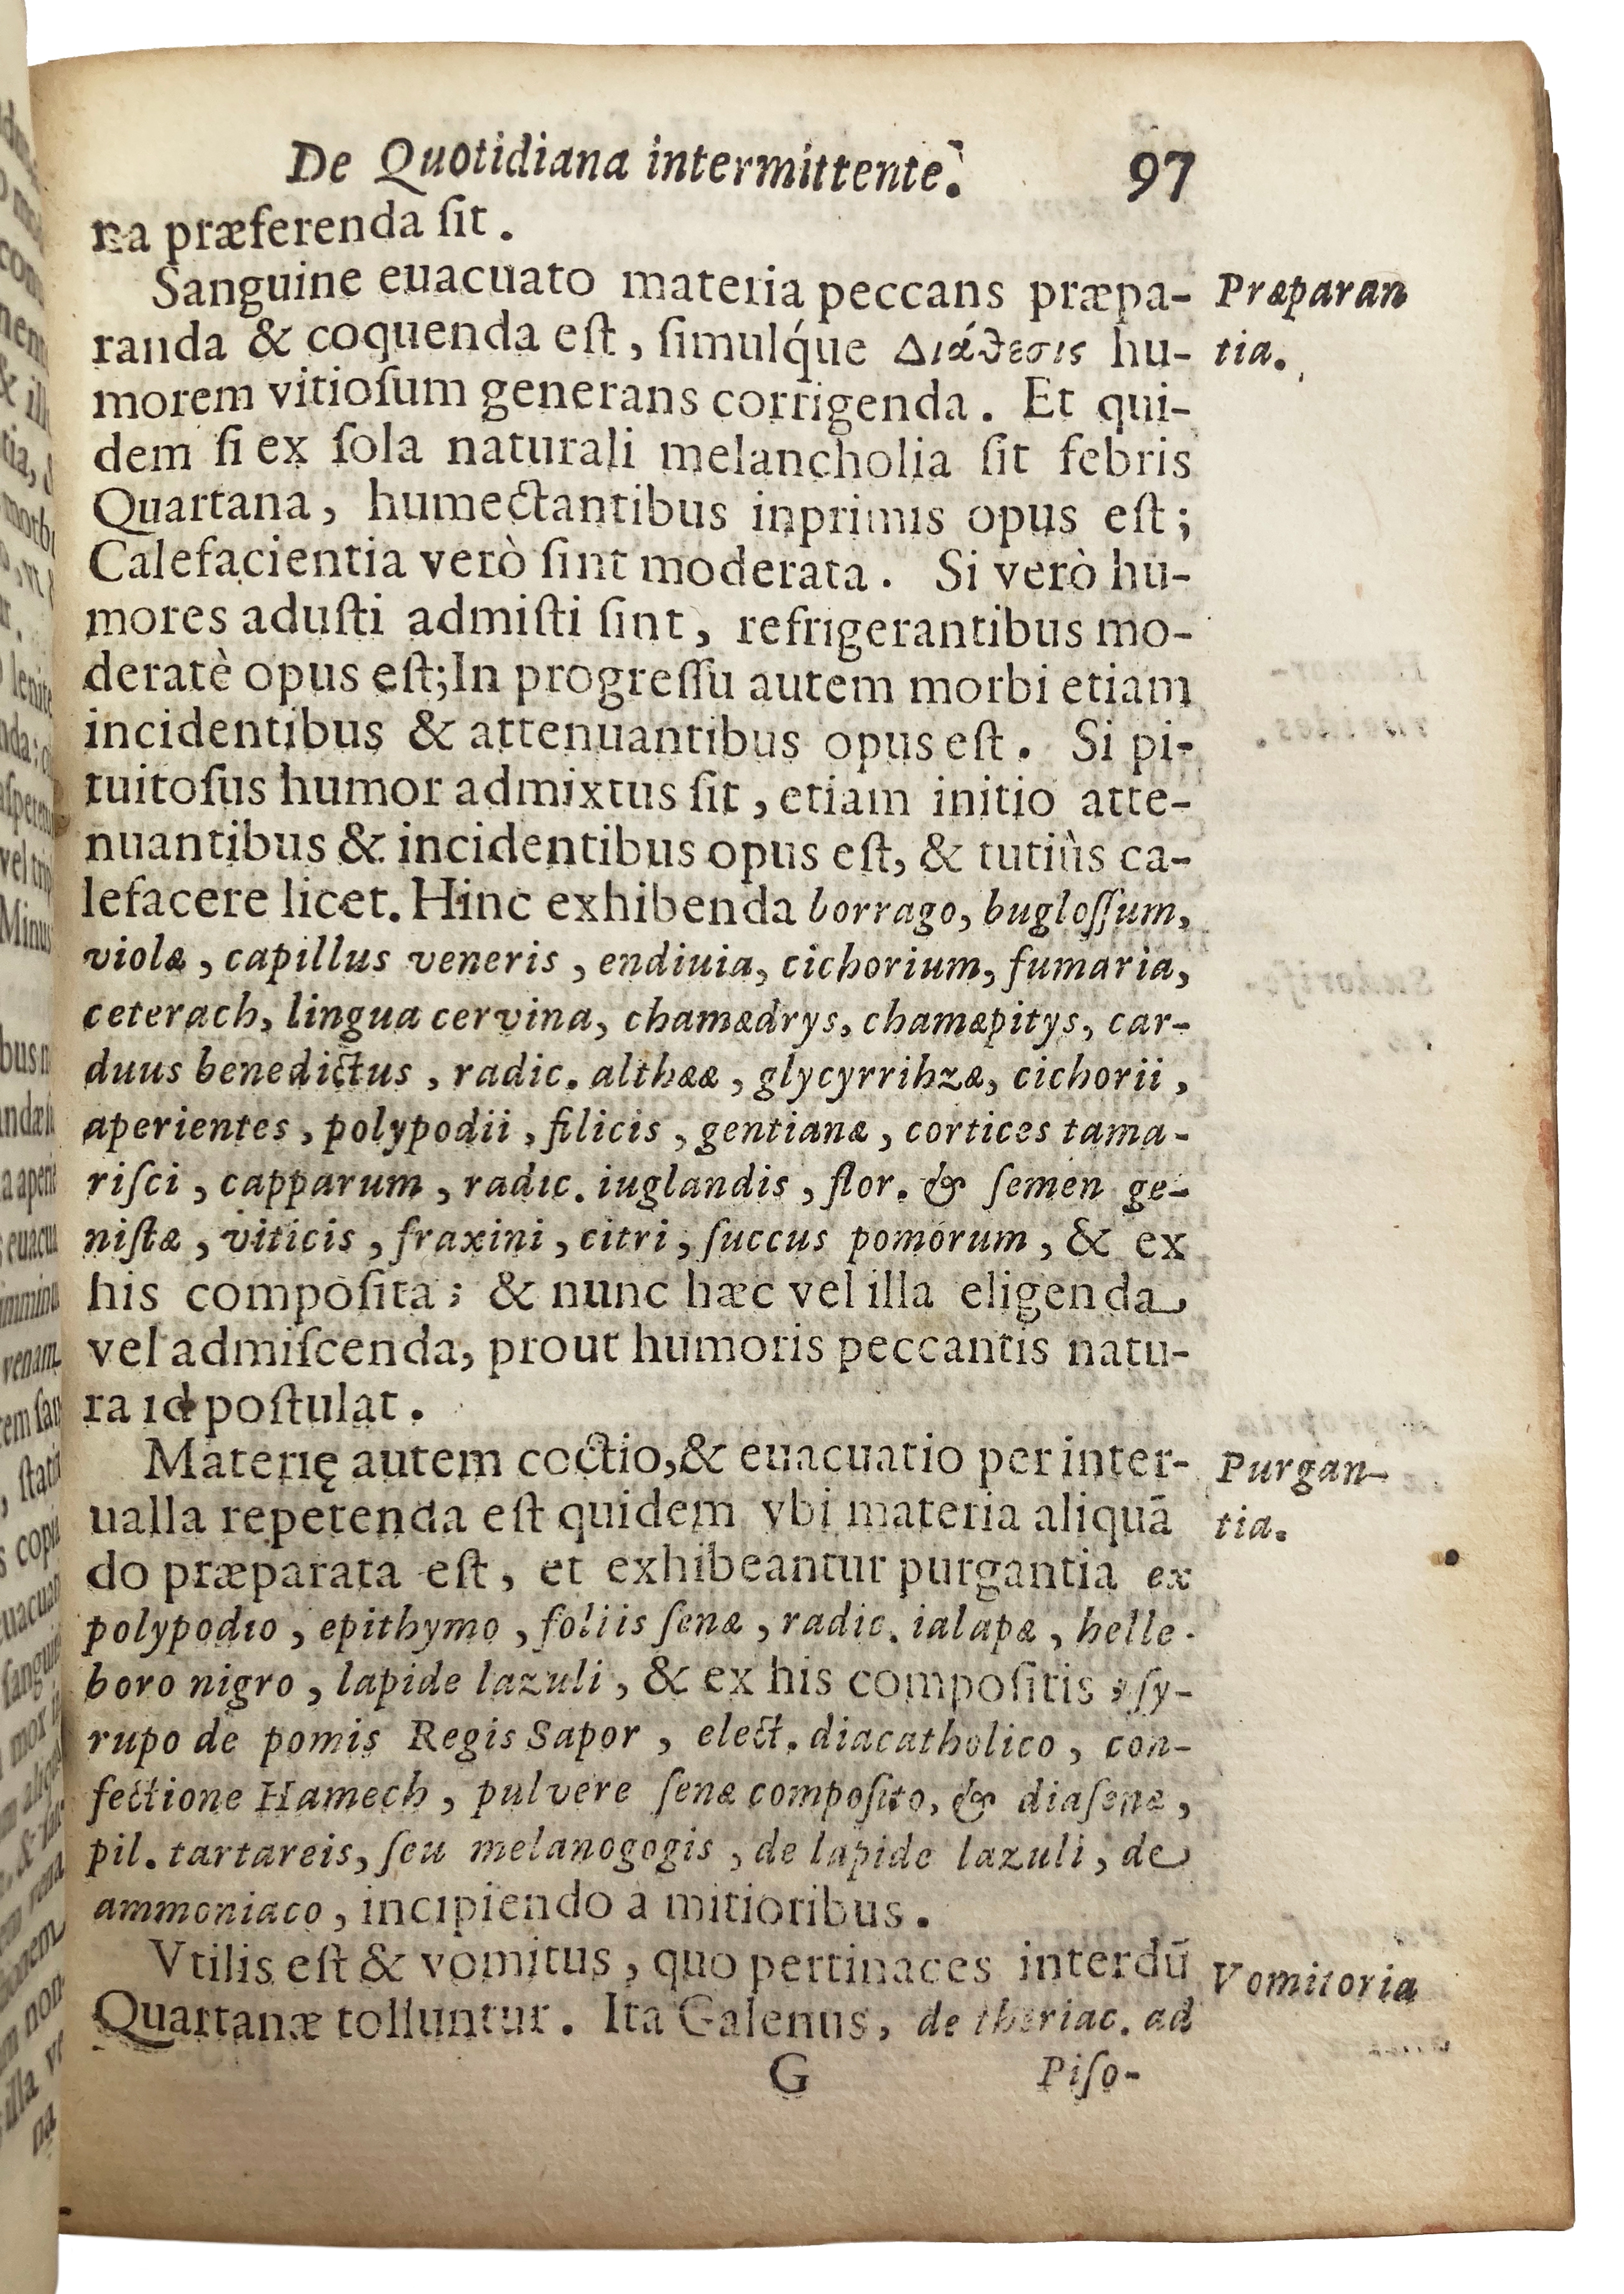 De Quotidiana intermittente. 97
na præferenda ſit .
Sanguine euacuato materia peccans præpa-
Præparan
randa & coquenda eſt , ſimulq́ue Διάθεσις hu-
tia.
morem vitioſum generans corrigenda . Et qui-
dem ſi ex ſola naturali melancholia ſit febris
Quartana , humectantibus inprimis opus eſt ;
Calefacientia verò ſint moderata . Si verò hu-
mores aduſti admiſti ſint , refrigerantibus mo-
deratè opus eſt; In progreſſu autem morbi etiam
incidentibus & attenuantibus opus eſt . Si pi-
tuitoſus humor admixtus ſit , etiam initio atte-
nuantibus & incidentibus opus eſt, & tutiùs ca-
lefacere licet. Hinc exhibenda borrago, bugloſſum,
violæ , capillus veneris , endiuia, cichorium, fumaria,
ceterach, lingua cervina, chamædrys, chamæpitys, car-
duus benedictus , radic. althææ , glycyrrihzæ, cichorii ,
aperientes , polypodii , filicis , gentianæ , cortices tama-
riſci , capparum , radic. iuglandis , flor. & ſemen ge-
niſtæ , viticis , fraxini , citri , ſuccus pomorum , & ex
his compoſita ; & nunc hæc vel illa eligenda
vel admiſcenda, prout humoris peccantis natu-
ra id poſtulat .
Materię autem coctio, & euacuatio per inter-
Purgan-
ualla repetenda eſt quidem vbi materia aliquā
tia.
do præparata eſt , et exhibeantur purgantia ex
polypodio , epithymo , foliis ſenæ , radic. ialapæ , helle-
boro nigro , lapide lazuli , & ex his compoſitis , ſy-
rupo de pomis Regis Sapor , elect. diacatholico , con-
fectione Hamech , pulvere ſenæ compoſito, & diaſenæ ,
pil. tartareis, ſeu melanogogis , de lapide lazuli , de
ammoniaco , incipiendo a mitioribus .
Vtilis eſt & vomitus , quo pertinaces interdū
Vomitoria
Quartanæ tolluntur . Ita Galenus , de theriac. ad
G Piſo-